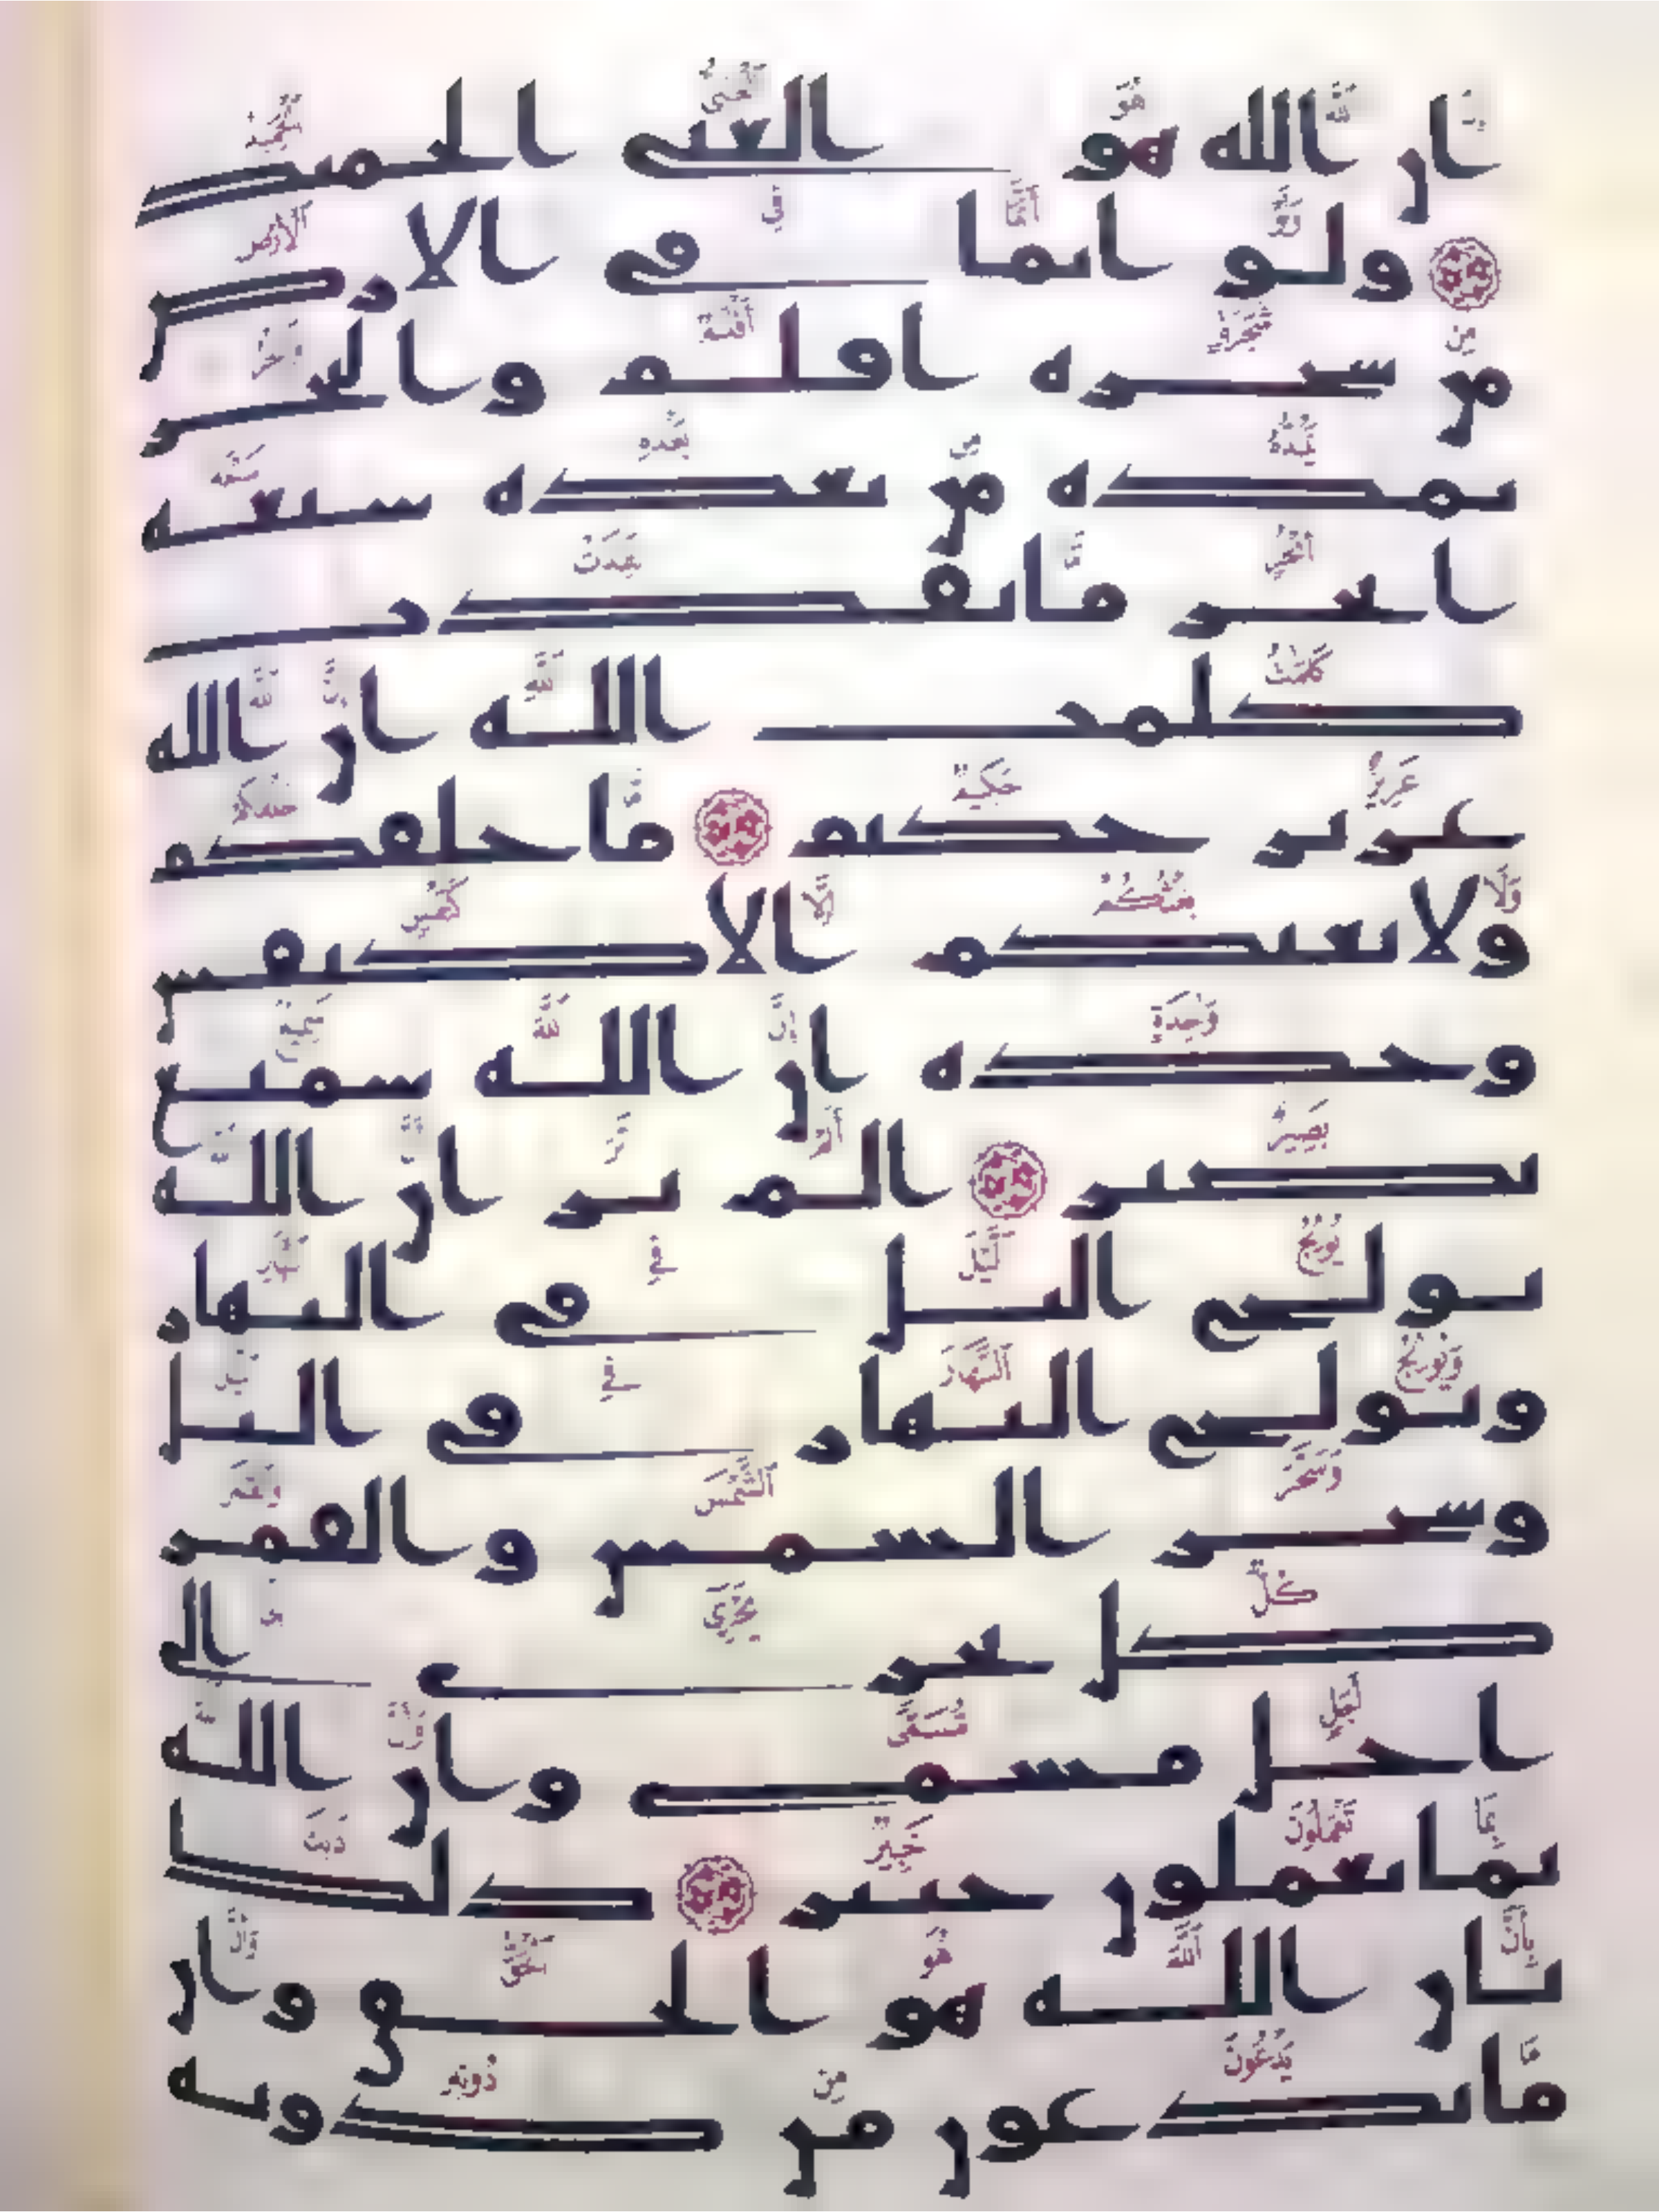 ان الله هو الغنى الحميد
ولو انما فى الارض
من شجره اقلم والبحر
يمده من بعده سبعه
ابحر ما نفدت
كلمت الله ان الله
عزيز حكيم ما خلقكم
ولا بعثكم الا كنفس
وحده ان الله سميع
بصير الم تر ان الله
يولج اليل فى النهار
ويولج النهار فى اليل
وسخر الشمس والقمر
كل يجرى الى
اجل مسمى وان الله
بما تعملون خبير ذلك
بان الله هو الحق وان
ما يدعون من دونه